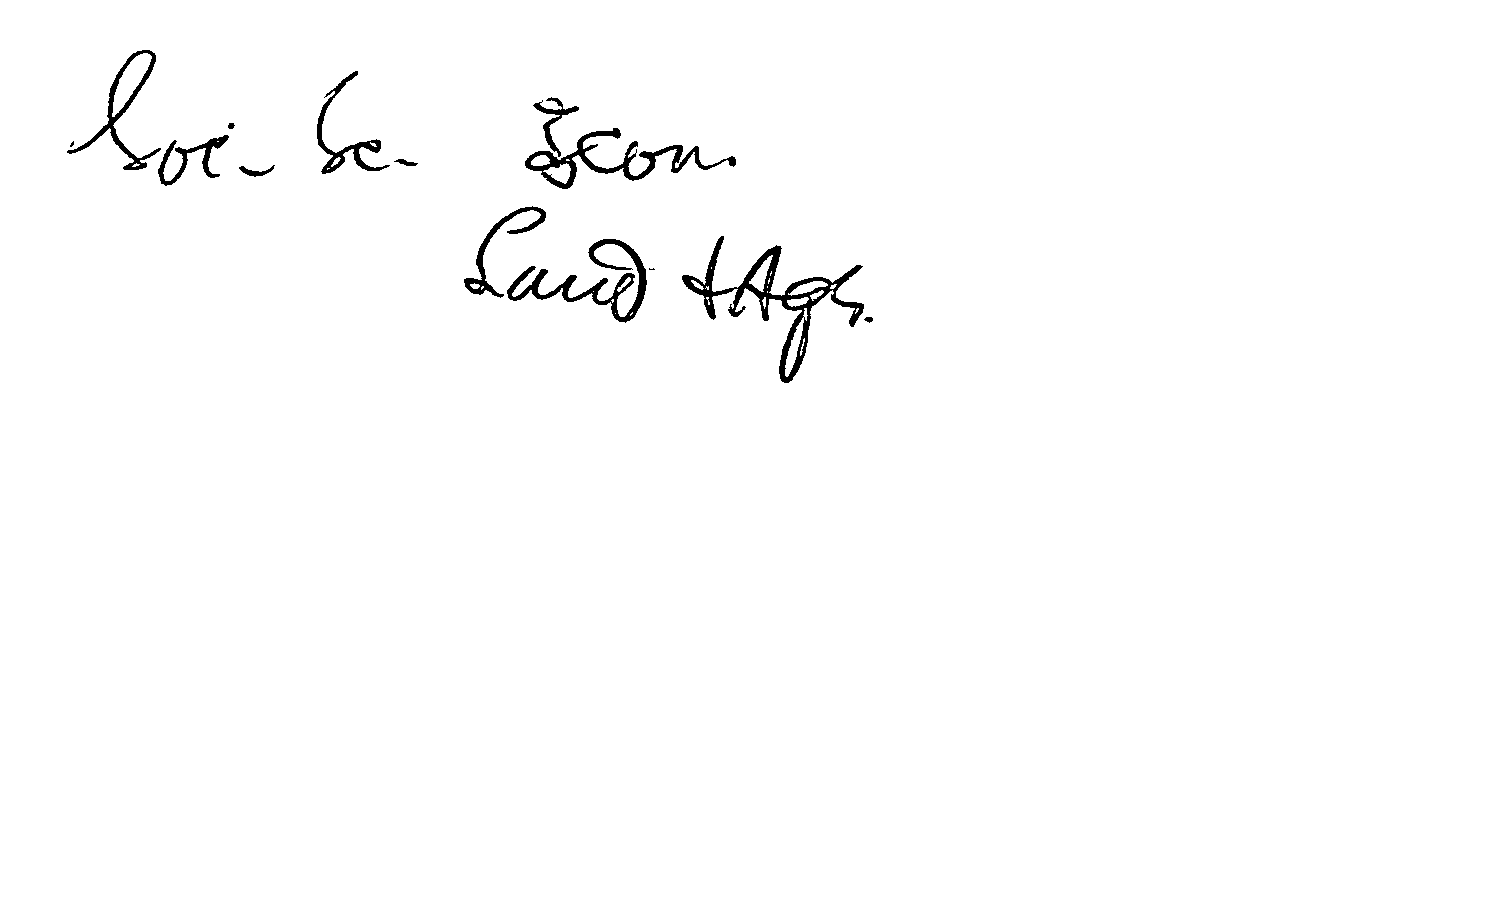 Soc. Sc. Econ.
Land + Ags.